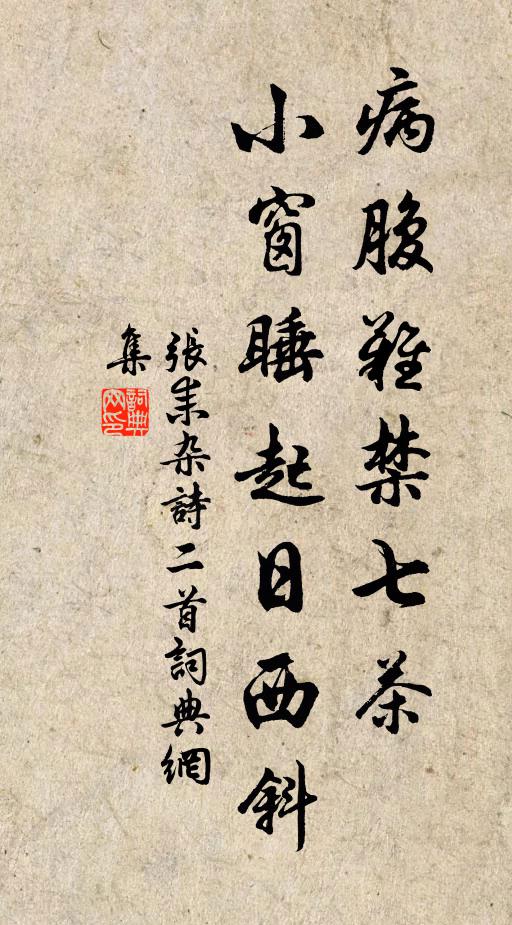 病腹難禁七茶
小窗睡起日西斜
張耒杂詩二首詞典網
集
詞典
网印